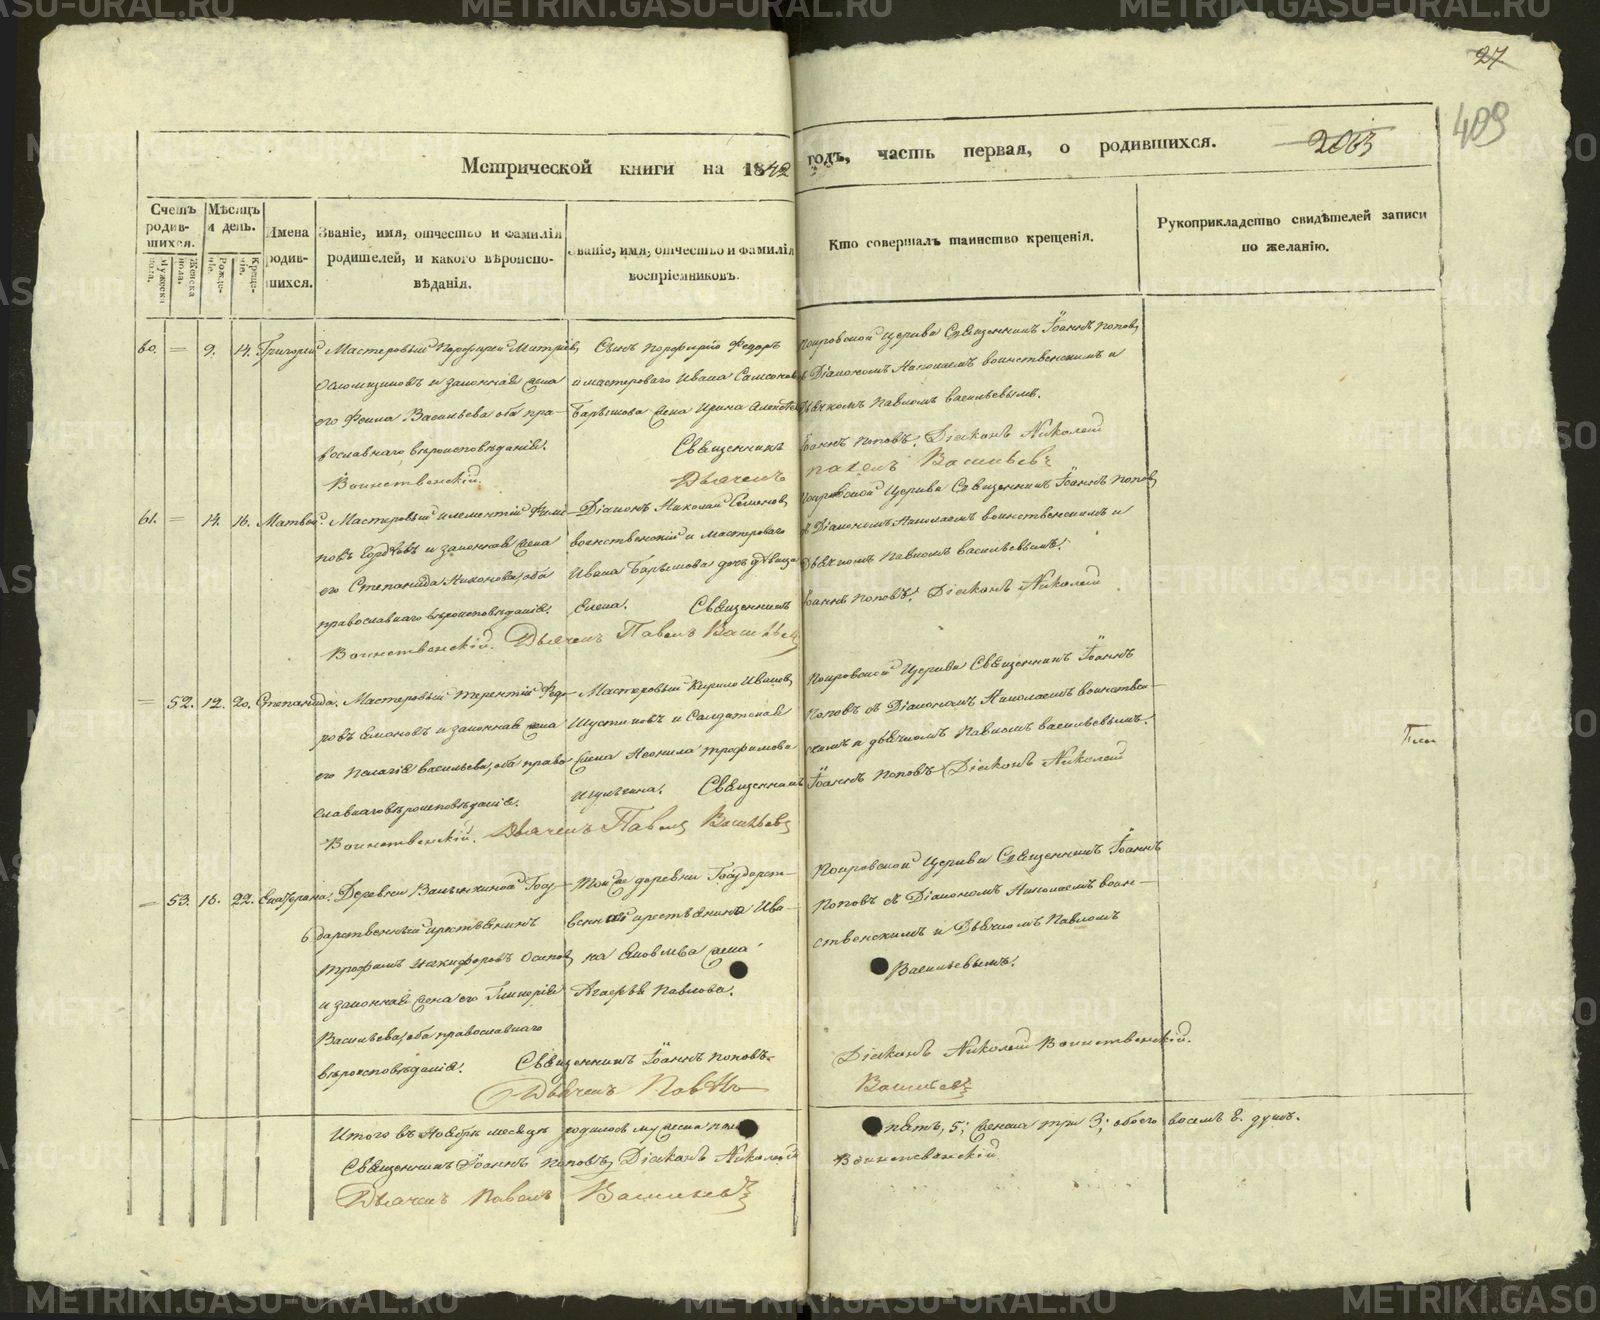 27
409
2065
Метрической книги на 1842 годъ, часть первая, о родившихся.
Счетъ родившихся.
Мужеска пола.
Женска пола.
Мѣсяцъ и день.
Рожденія.
Крещенія.
Имена родившихся.
Званіе, имя, отчество и фамилія родителей, и какого вѣроисповѣданія.
Званіе, имя, отчество и фамилія воспріемниковъ.
Кто совершалъ таинство крещенія.
Рукоприкладство свидѣтелей записи по желанію.
60. = 9. 14. Григорій
Мастеровый Порфирій Митріев
и законная жена
его Васильева оба пра-
вославнаго вѣроисповѣданія.
Сынъ Порфирія Федоръ
и мастероваго Ивана Самсонова
Барышова жена Ирина Алексѣева
Покровской Церкви Священникъ Іоаннъ Поповъ
съ Діакономъ Николаемъ Воинственскимъ и
Дьячкомъ Павломъ Васильевымъ.
Священникъ Іоаннъ Поповъ. Діаконъ Николай
Воинственскій. Дьячекъ Павелъ Васильевъ
61. = 14. 16. Матвей.
Мастеровый Клементій Фили-
повъ и законная жена
его Степанида Никонова, оба
православнаго вѣроисповѣданія.
Діаконъ Николай Семенов
Воинственскій и мастероваго
Ивана Барышова дочь дѣвица
Елена.
Покровской Церкви Священникъ Іоаннъ Поповъ
съ Діакономъ Николаемъ Воинственскимъ и
Дьячкомъ Павломъ Васильевымъ.
Священникъ Іоаннъ Поповъ. Діаконъ Николай
Воинственскій. Дьячекъ Павелъ Васильевъ
= 52. 12. 20. Степанида.
Мастеровый Терентій Федо-
ровъ и законная жена
его Пелагія Васильева, оба право-
славнаго вѣроисповѣданія.
Мастеровый Кирило Иванов
Шустиковъ и Солдатская
жена Неонила Трофимова
Покровской Церкви Священникъ Іоаннъ
Поповъ съ Діакономъ Николаемъ Воинствен-
скимъ и дьячкомъ Павломъ Васильевымъ.
Священникъ Іоаннъ Поповъ Діаконъ Николай
Воинственскій. Дьячекъ Павелъ Васильевъ
= 53. 16. 22. Екатерина.
Деревни Госу-
дарственный крестьянинъ
Трофимъ Никифоровъ Осипов
и законная жена его Гликерія
Васильева, оба православнаго
вѣроисповѣданія.
Той же деревни Государст-
веннаго крестьянина Ива-
на жена
Павлова.
Покровской Церкви Священникъ Іоаннъ
Поповъ съ Діакономъ Николаемъ Воин-
ственскимъ и Дьячкомъ Павломъ
Васильевымъ.
Священникъ Іоаннъ Поповъ. Діаконъ Николай Воинственскій.
Дьячекъ Павелъ Васильевъ
Итого въ Ноябрѣ месяцѣ родилось мужеска пола пять, 5; женска три 3; обоего восемь 8. душъ.
Священникъ Іоаннъ Поповъ, Діаконъ Николай Воинственскій
Дьячекъ Павелъ Васильевъ
METRIKI.GASU-URAL.RU